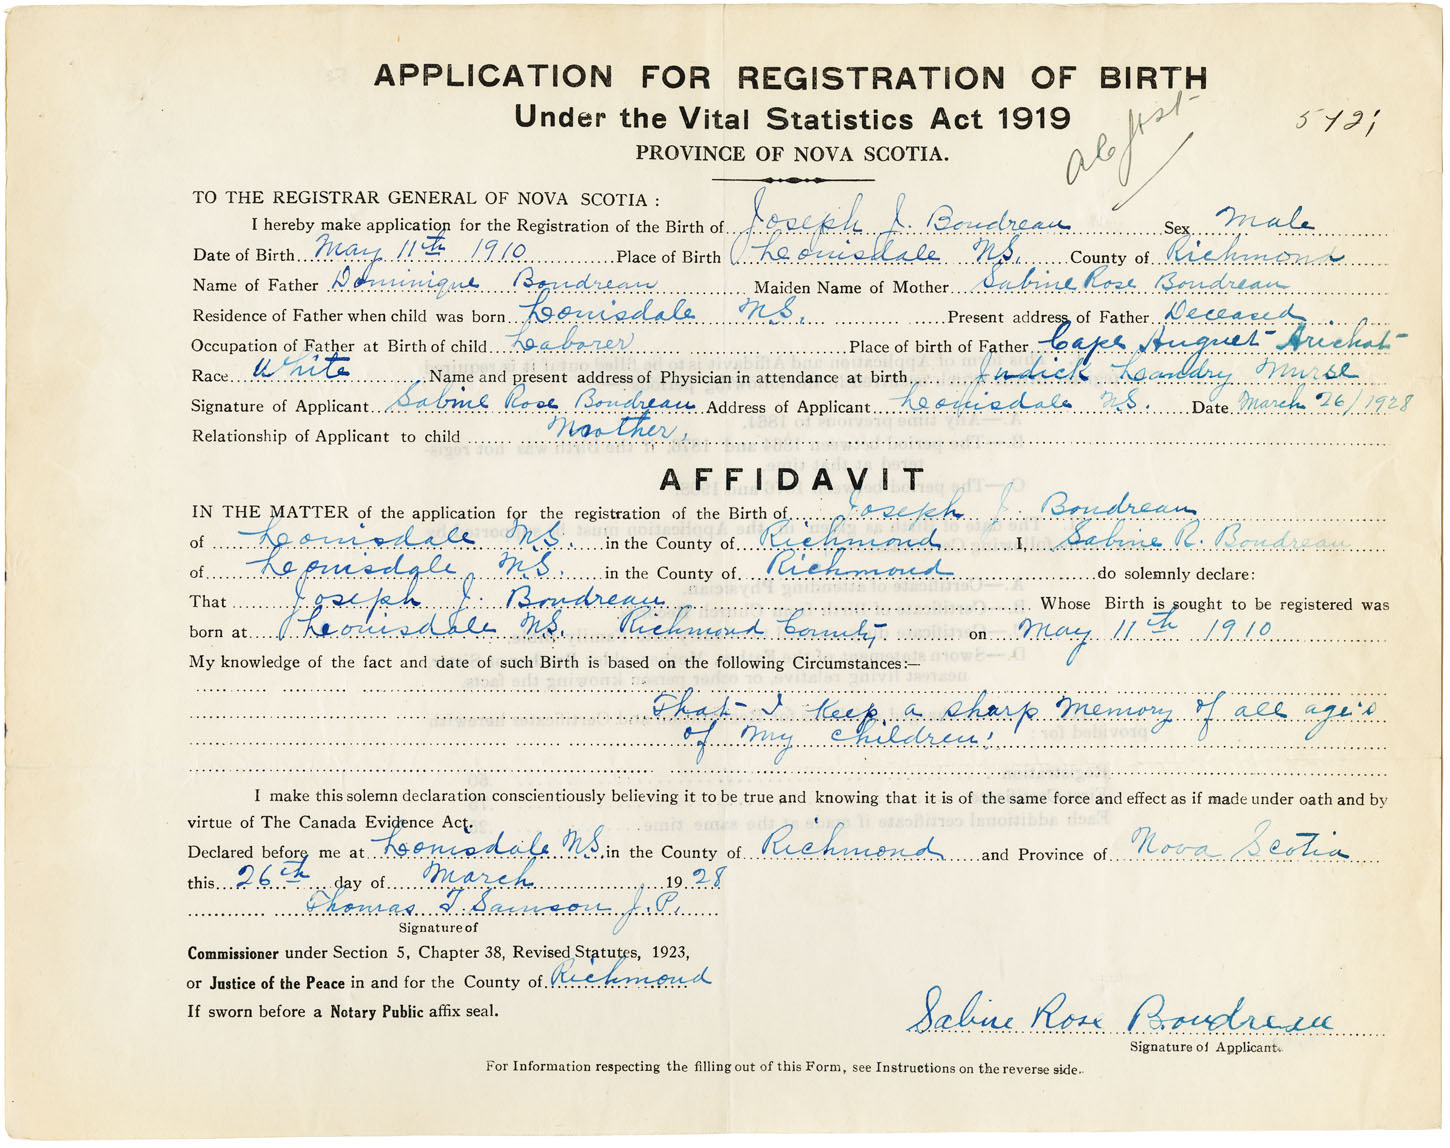 APPLICATION FOR REGISTRATION OF BIRTH
Under the Vital Statistics Act 1919
PROVINCE OF NOVA SCOTIA.
TO THE REGISTRAR GENERAL OF NOVA SCOTIA :
I hereby make application for the Registration of the Birth of Joseph J. Boudreau Sex Male
Date of Birth May 11th 1910 Place of Birth Louisdale N.S. County of Richmond
Name of Father Dominique Boudreau Maiden Name of Mother Sabine Rose Boudreau
Residence of Father when child was born Louisdale N.S. Present address of Father Deceased
Occupation of Father at Birth of child Laborer Place of birth of Father Cape Auguet Arichat
Race White Name and present address of Physician in attendance at birth Judick Landry Nurse
Signature of Applicant Sabine Rose Boudreau Address of Applicant Louisdale N.S. Date March 26/1928
Relationship of Applicant to child Mother.
AFFIDAVIT
IN THE MATTER of the application for the registration of the Birth of Joseph J. Boudreau
of Louisdale N.S. in the County of Richmond I, Sabine R. Boudreau
of Louisdale N.S. in the County of Richmond do solemnly declare:
That Joseph J. Boudreau Whose Birth is sought to be registered was
born at Louisdale N.S. Richmond County on May 11th 1910
My knowledge of the fact and date of such Birth is based on the following Circumstances:—
That I Keep a sharp Memory of all age's
of my children:
I make this solemn declaration conscientiously believing it to be true and knowing that it is of the same force and effect as if made under oath and by
virtue of The Canada Evidence Act.
Declared before me at Louisdale N.S. in the County of Richmond and Province of Nova Scotia
this 26th day of March 1928
Thomas T. Samson J.P.
Signature of
Commissioner under Section 5, Chapter 38, Revised Statutes, 1923,
or Justice of the Peace in and for the County of Richmond
If sworn before a Notary Public affix seal.
Sabine Rose Boudreau
Signature of Applicant.
For Information respecting the filling out of this Form, see Instructions on the reverse side.